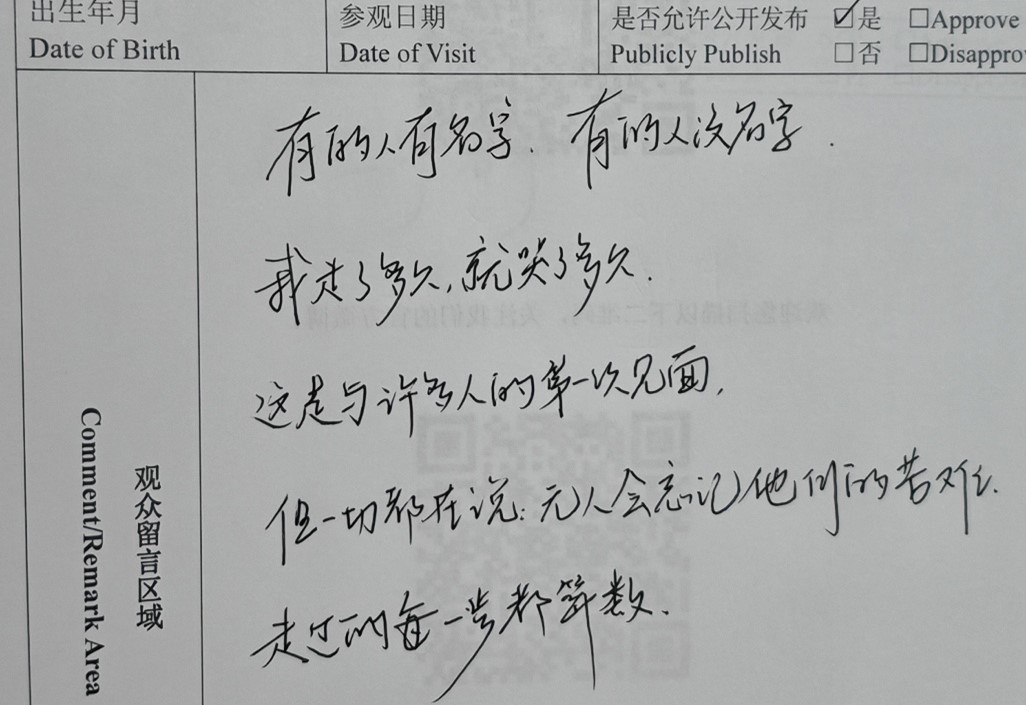 出生年月
Date of Birth
参观日期
Date of Visit
是否允许公开发布
Publicly Publish
☑是 □Approve
□否 □Disappro
观众留言区域
Comment/Remark Area
有的人有名字.有的人没名字.
我走了多久,就哭了多久.
这是与许多人的第一次见面,
但一切都在说:无人会忘记他们的苦难.
走过的每一步都算数.